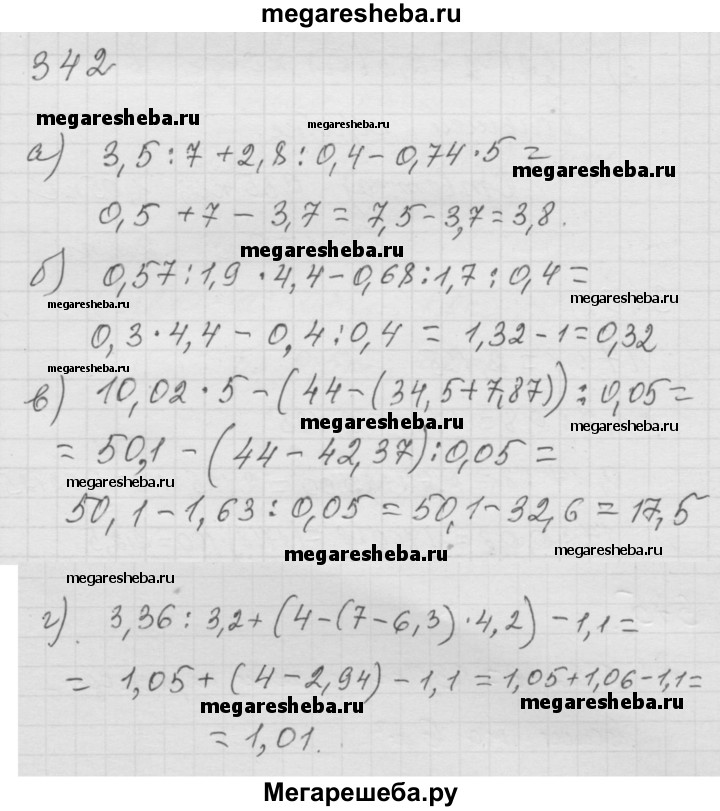 megaresheba.ru
342
megaresheba.ru
megaresheba.ru
а) 3,5 : 7 + 2,8 : 0,4 - 0,74 · 5 =
megaresheba.ru
0,5 + 7 - 3,7 = 7,5 - 3,7 = 3,8.
megaresheba.ru
б) 0,57 : 1,9 · 4,4 - 0,68 : 1,7 : 0,4 =
megaresheba.ru
megaresheba.ru
0,3 · 4,4 - 0,4 : 0,4 = 1,32 - 1 = 0,32
megaresheba.ru
в) 10,02 · 5 - (44 - (34,5 + 7,87)) : 0,05 =
megaresheba.ru
megaresheba.ru
= 50,1 - (44 - 42,37) : 0,05 =
megaresheba.ru
megaresheba.ru
50,1 - 1,63 : 0,05 = 50,1 - 32,6 = 17,5
megaresheba.ru
megaresheba.ru
megaresheba.ru
г) 3,36 : 3,2 + (4 - (7 - 6,3) · 4,2) - 1,1 =
= 1,05 + (4 - 2,94) - 1,1 = 1,05 + 1,06 - 1,1 =
megaresheba.ru
megaresheba.ru
= 1,01.
Мегарешеба.ру